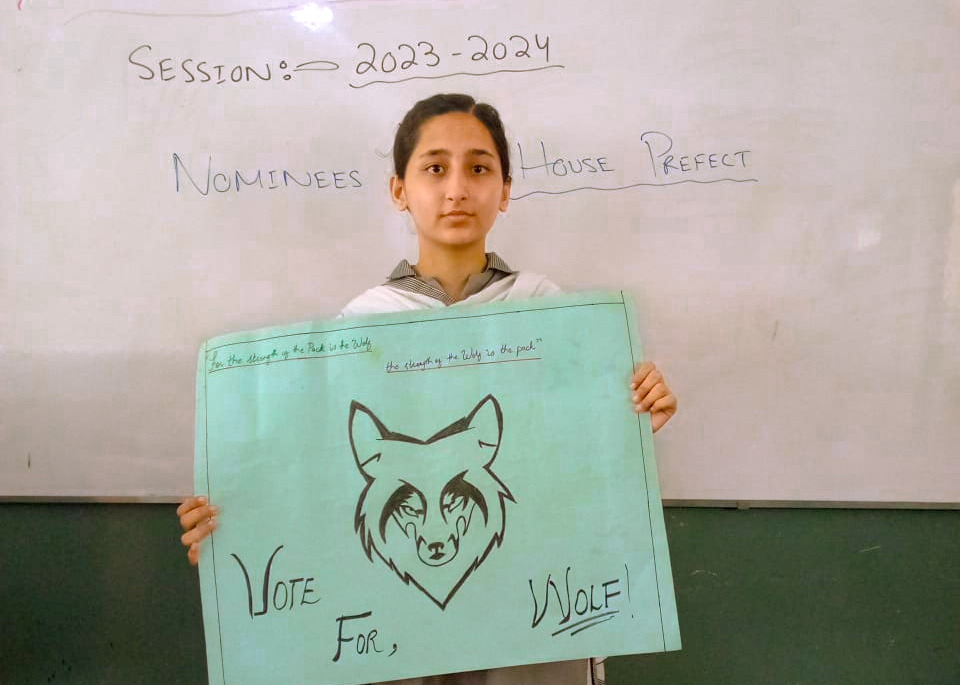 SESSION:- 2023-2024
NOMINEES HOUSE PREFECT
for the strength of the Pack is the Wolf
the strength of the Wolf is the pack"
VOTE
FOR,
WOLF!